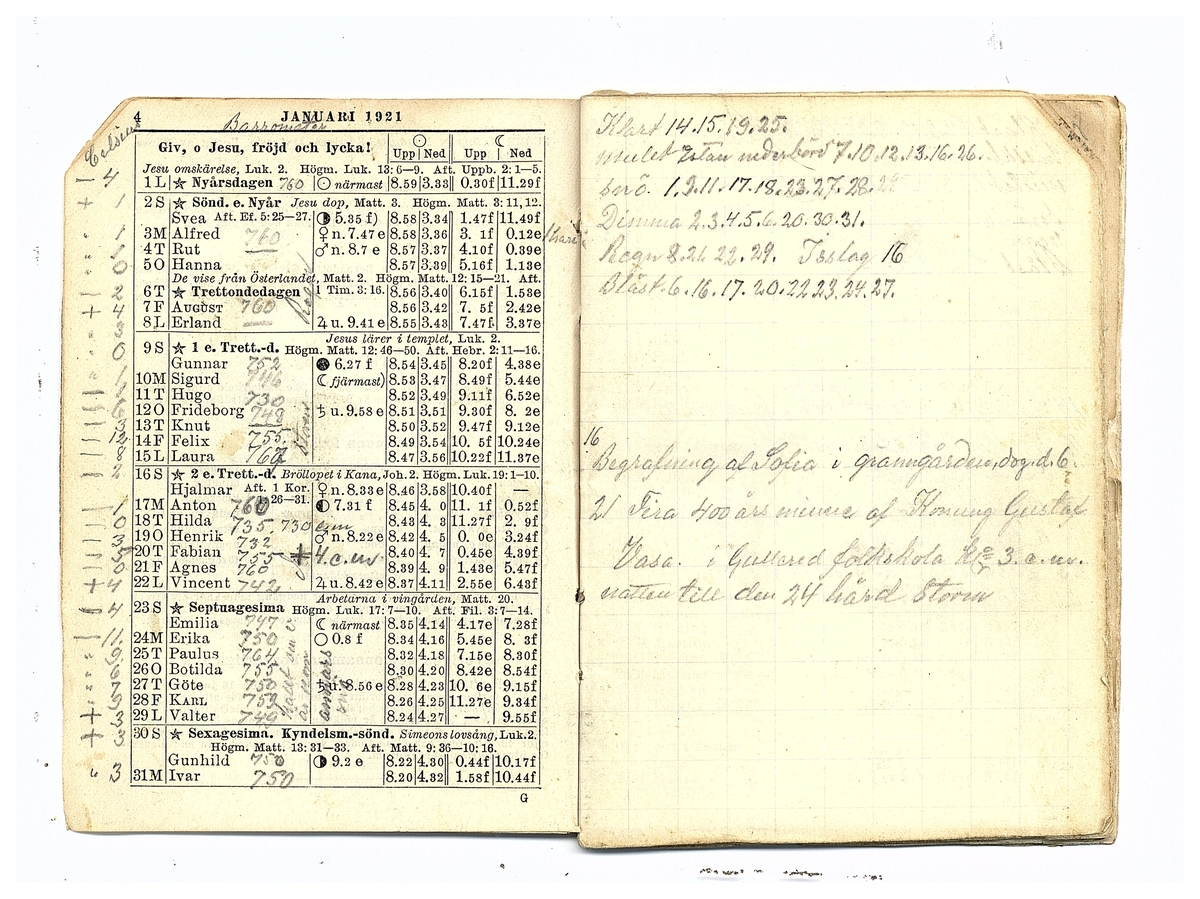 4 JANUARI 1921
Barrometer
Celsius
Giv, o Jesu, fröjd och lycka! ☉ ☾
Upp Ned Upp Ned
Jesu omskärelse, Luk. 2. Högm. Luk. 13: 6—9. Aft. Uppb. 2: 1—5.
1 L ★ Nyårsdagen 760 ☉ närmast 8.59 3.33 0.30f 11.29f
2 S ★ Sönd. e. Nyår Jesu dop, Matt. 3. Högm. Matt. 3: 11, 12.
Svea Aft. Ef. 5: 25—27. ◑ 5.35 f) 8.58 3.34 1.47f 11.49f
3 M Alfred 760 ♀ n. 7.47 e 8.58 3.36 3. 1f 0.12e
4 T Rut ♂ n. 8.7 e 8.57 3.37 4.10f 0.39e
5 O Hanna 8.57 3.39 5.16f 1.13e
De vise från Österlandet, Matt. 2. Högm. Matt. 12: 15—21. Aft.
6 T ★ Trettondedagen 1 Tim. 3: 16. 8.56 3.40 6.15f 1.53e
7 F August 760 8.56 3.42 7. 5f 2.42e
8 L Erland ♃ u. 9.41 e 8.55 3.43 7.47f 3.37e
Jesus lärer i templet, Luk. 2.
9 S ★ 1 e. Trett.-d. Högm. Matt. 12: 46—50. Aft. Hebr. 2: 11—16.
Gunnar 752 6.27 f 8.54 3.45 8.20f 4.38e
10 M Sigurd 746 ☾ fjärmast) 8.53 3.47 8.49f 5.44e
11 T Hugo 730 8.52 3.49 9.11f 6.52e
12 O Frideborg 748 ♄ u. 9.58 e 8.51 3.51 9.30f 8. 2e
13 T Knut 8.50 3.52 9.47f 9.12e
14 F Felix 755. 8.49 3.54 10. 5f 10.24e
15 L Laura 767 8.47 3.56 10.22f 11.37e
16 S ★ 2 e. Trett.-d. Bröllopet i Kana, Joh. 2. Högm. Luk. 19: 1—10.
Hjalmar Aft. 1 Kor. ♀ n. 8.33 e 8.46 3.58 10.40f —
1: 26—31.
17 M Anton 760 ◐ 7.31 f 8.45 4. 0 11. 1f 0.52f
18 T Hilda 735. 730 e.m 8.43 4. 3 11.27f 2. 9f
19 O Henrik 732 ♂ n. 8.22 e 8.42 4. 5 0. 0e 3.24f
20 T Fabian 755 4. e. m. 8.40 4. 7 0.45e 4.39f
21 F Agnes 760 8.39 4. 9 1.43e 5.47f
22 L Vincent 742 ♃ u. 8.42 e 8.37 4.11 2.55e 6.43f
Arbetarna i vingården, Matt. 20.
23 S ★ Septuagesima Högm. Luk. 17: 7—10. Aft. Fil. 3: 7—14.
Emilia 747 ☾ närmast 8.35 4.14 4.17e 7.28f
24 M Erika 750 ○ 0.8 f 8.34 4.16 5.45e 8. 3f
25 T Paulus 764 8.32 4.18 7.15e 8.30f
26 O Botilda 755 8.30 4.20 8.42e 8.54f
27 T Göte 750 ♄ u. 8.56 e 8.28 4.23 10. 6e 9.15f
28 F Karl 753 8.26 4.25 11.27e 9.34f
29 L Valter 749 8.24 4.27 — 9.55f
30 S ★ Sexagesima. Kyndelsm.-sönd. Simeons lovsång, Luk. 2.
Högm. Matt. 13: 31—33. Aft. Matt. 9: 36—10: 16.
Gunhild 750 ◑ 9.2 e 8.22 4.30 0.44f 10.17f
31 M Ivar 750 8.20 4.32 1.58f 10.44f
G
Klart 14. 15. 19. 25.
mulet utan nederbörd 7. 10. 12. 13. 16. 26.
snö. 1. 9. 11. 17. 18. 23. 27. 28. 29
Dimma 2. 3. 4. 5. 6. 20. 30. 31.
Regn 8. 21 22. 29. Isslag 16
Blåst. 6. 16. 17. 20. 22 23. 24. 27.
16
Begrafning af Sofia i granngården, dog. d. 6.
21 Fira 400 års minne af Konung Gustaf
Vasa. i Gullered folkskola Kl 3. e. m.
natten till den 24 hård Storm